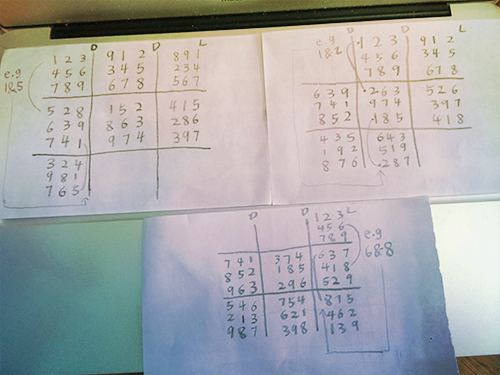 D D L
1 2 3 9 1 2 8 9 1
e.g 4 5 6 3 4 5 2 3 4
1&5 7 8 9 6 7 8 5 6 7
5 2 8 1 5 2 4 1 5
6 3 9 8 6 3 2 8 6
7 4 1 9 7 4 3 9 7
3 2 4
9 8 1
7 6 5
D L
e.g 1 2 3 9 1 2
1&2 4 5 6 3 4 5
7 8 9 6 7 8
6 3 9 2 6 3 5 2 6
7 4 1 9 7 4 3 9 7
8 5 2 1 8 5 4 1 8
4 3 5 6 4 3
1 9 2 5 1 9
8 7 6 2 8 7
D D L
1 2 3
4 5 6 e.g
7 8 9 6&8
7 4 1 3 7 4 6 3 7
8 5 2 1 8 5 4 1 8
9 6 3 2 9 6 5 2 9
5 4 6 7 5 4 8 7 5
2 1 3 6 2 1 4 6 2
9 8 7 3 9 8 1 3 9